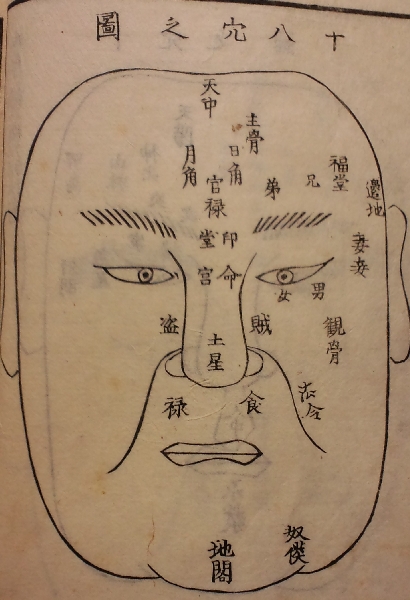 十八穴之圖
天中
主骨
日角
月角
官禄
福堂
兄
弟
邊地
印堂
妻妾
命宮
男
女
賊
盗
観骨
土星
食
禄
法令
奴僕
地閣